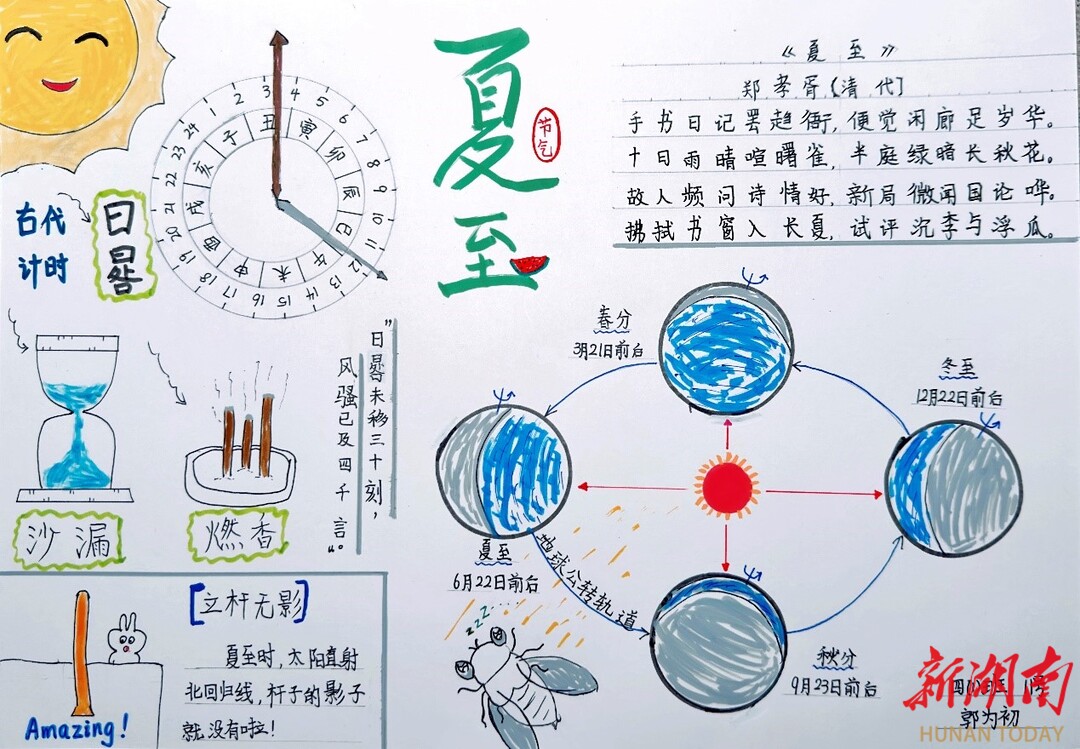 夏至
节气
《夏至》
郑孝胥〔清代〕
手书日记罢趋衙,便觉闲廊足岁华。
十日雨晴喧曙雀,半庭绿暗长秋花。
故人频问诗情好,新局微闻国论哗。
拂拭书窗入长夏,试评沉李与浮瓜。
1 2 3 4 5 6 7 8 9 10 11 12 13 14 15 16 17 18 19 20 21 22 23 24
子 丑 寅 卯 辰 巳 午 未 申 酉 戌 亥
古代
计时
日晷
沙漏
燃香
"日晷未移三十刻,
风骚已及四千言"。
春分
3月21日前后
冬至
12月22日前后
夏至
6月22日前后
秋分
9月23日前后
地球公转轨道
[立杆无影]
夏至时,太阳直射
北回归线,杆子的影子
就没有啦!
Amazing!
zzz
郭为初
新湖南
HUNAN TODAY